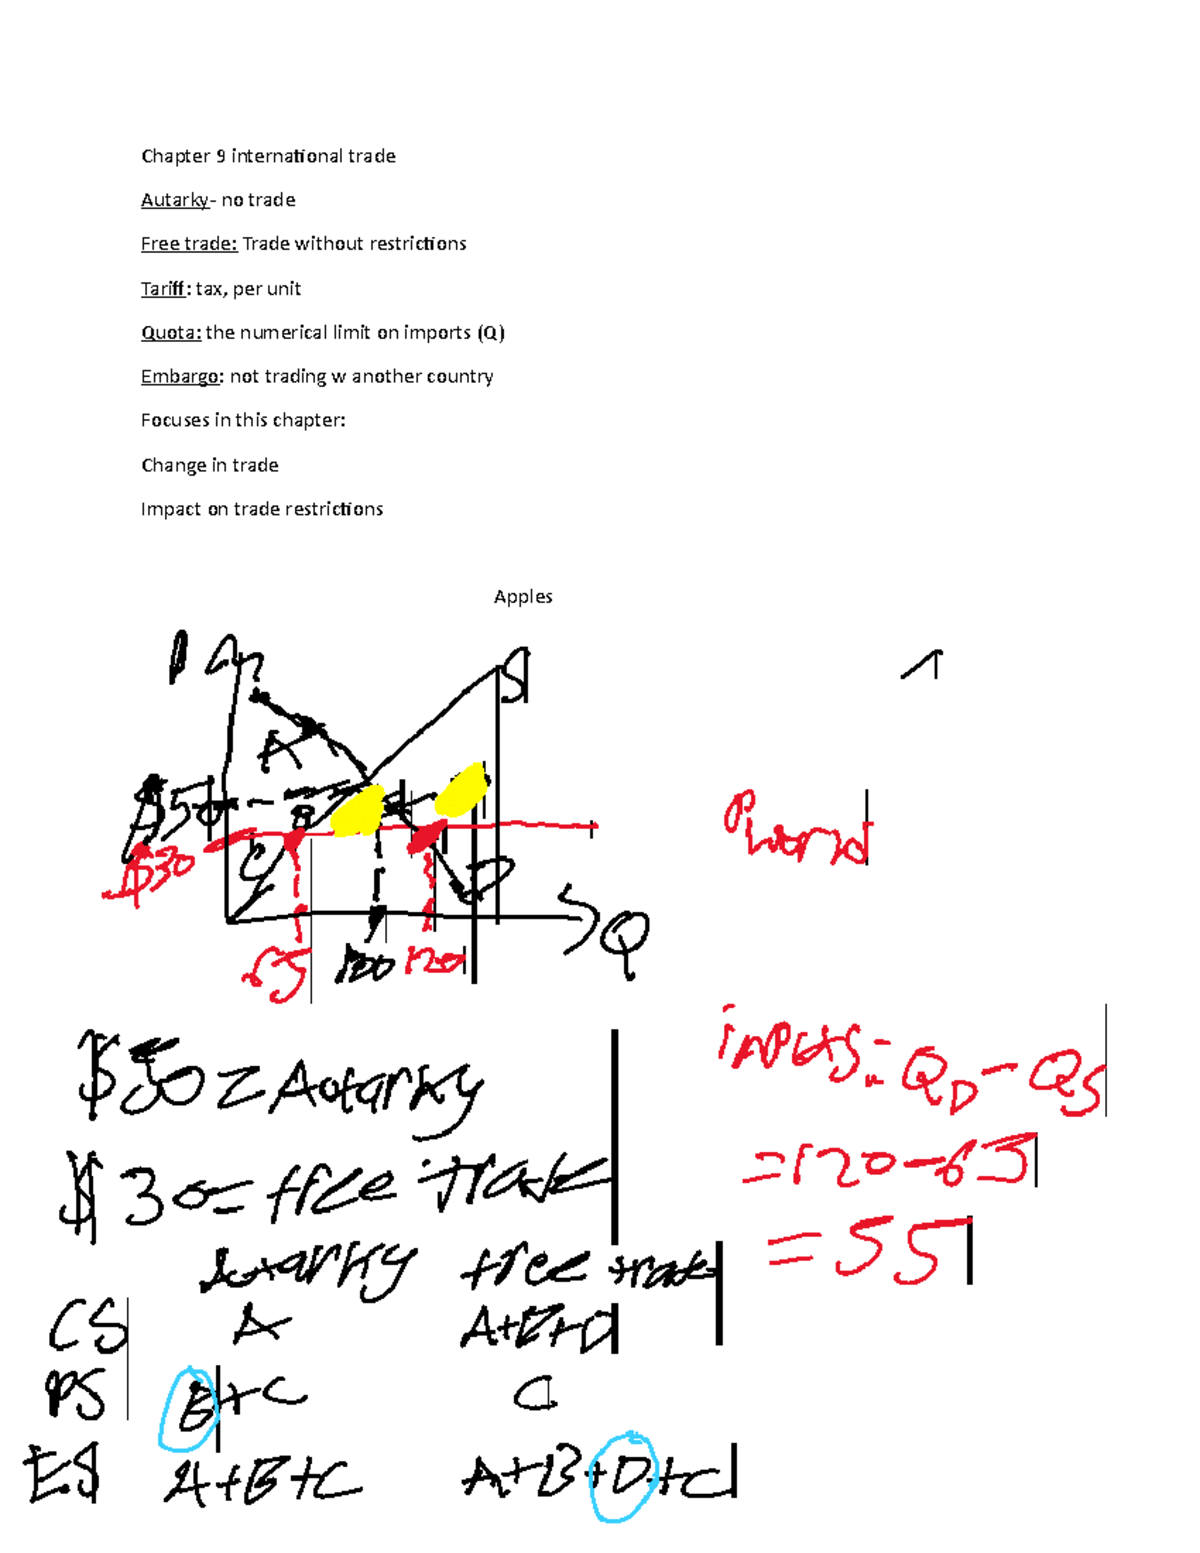 Chapter 9 international trade
Autarky- no trade
Free trade: Trade without restrictions
Tariff: tax, per unit
Quota: the numerical limit on imports (Q)
Embargo: not trading w another country
Focuses in this chapter:
Change in trade
Impact on trade restrictions
Apples
P
S
A
$50
B
$30
C
D
Pworld
65 100 120
Q
$50 = Autarky
$30 = free trade
Autarky free trade
CS A A+B+D
PS B+C C
ES A+B+C A+B+D+C
QD - QS
=120-65
=55